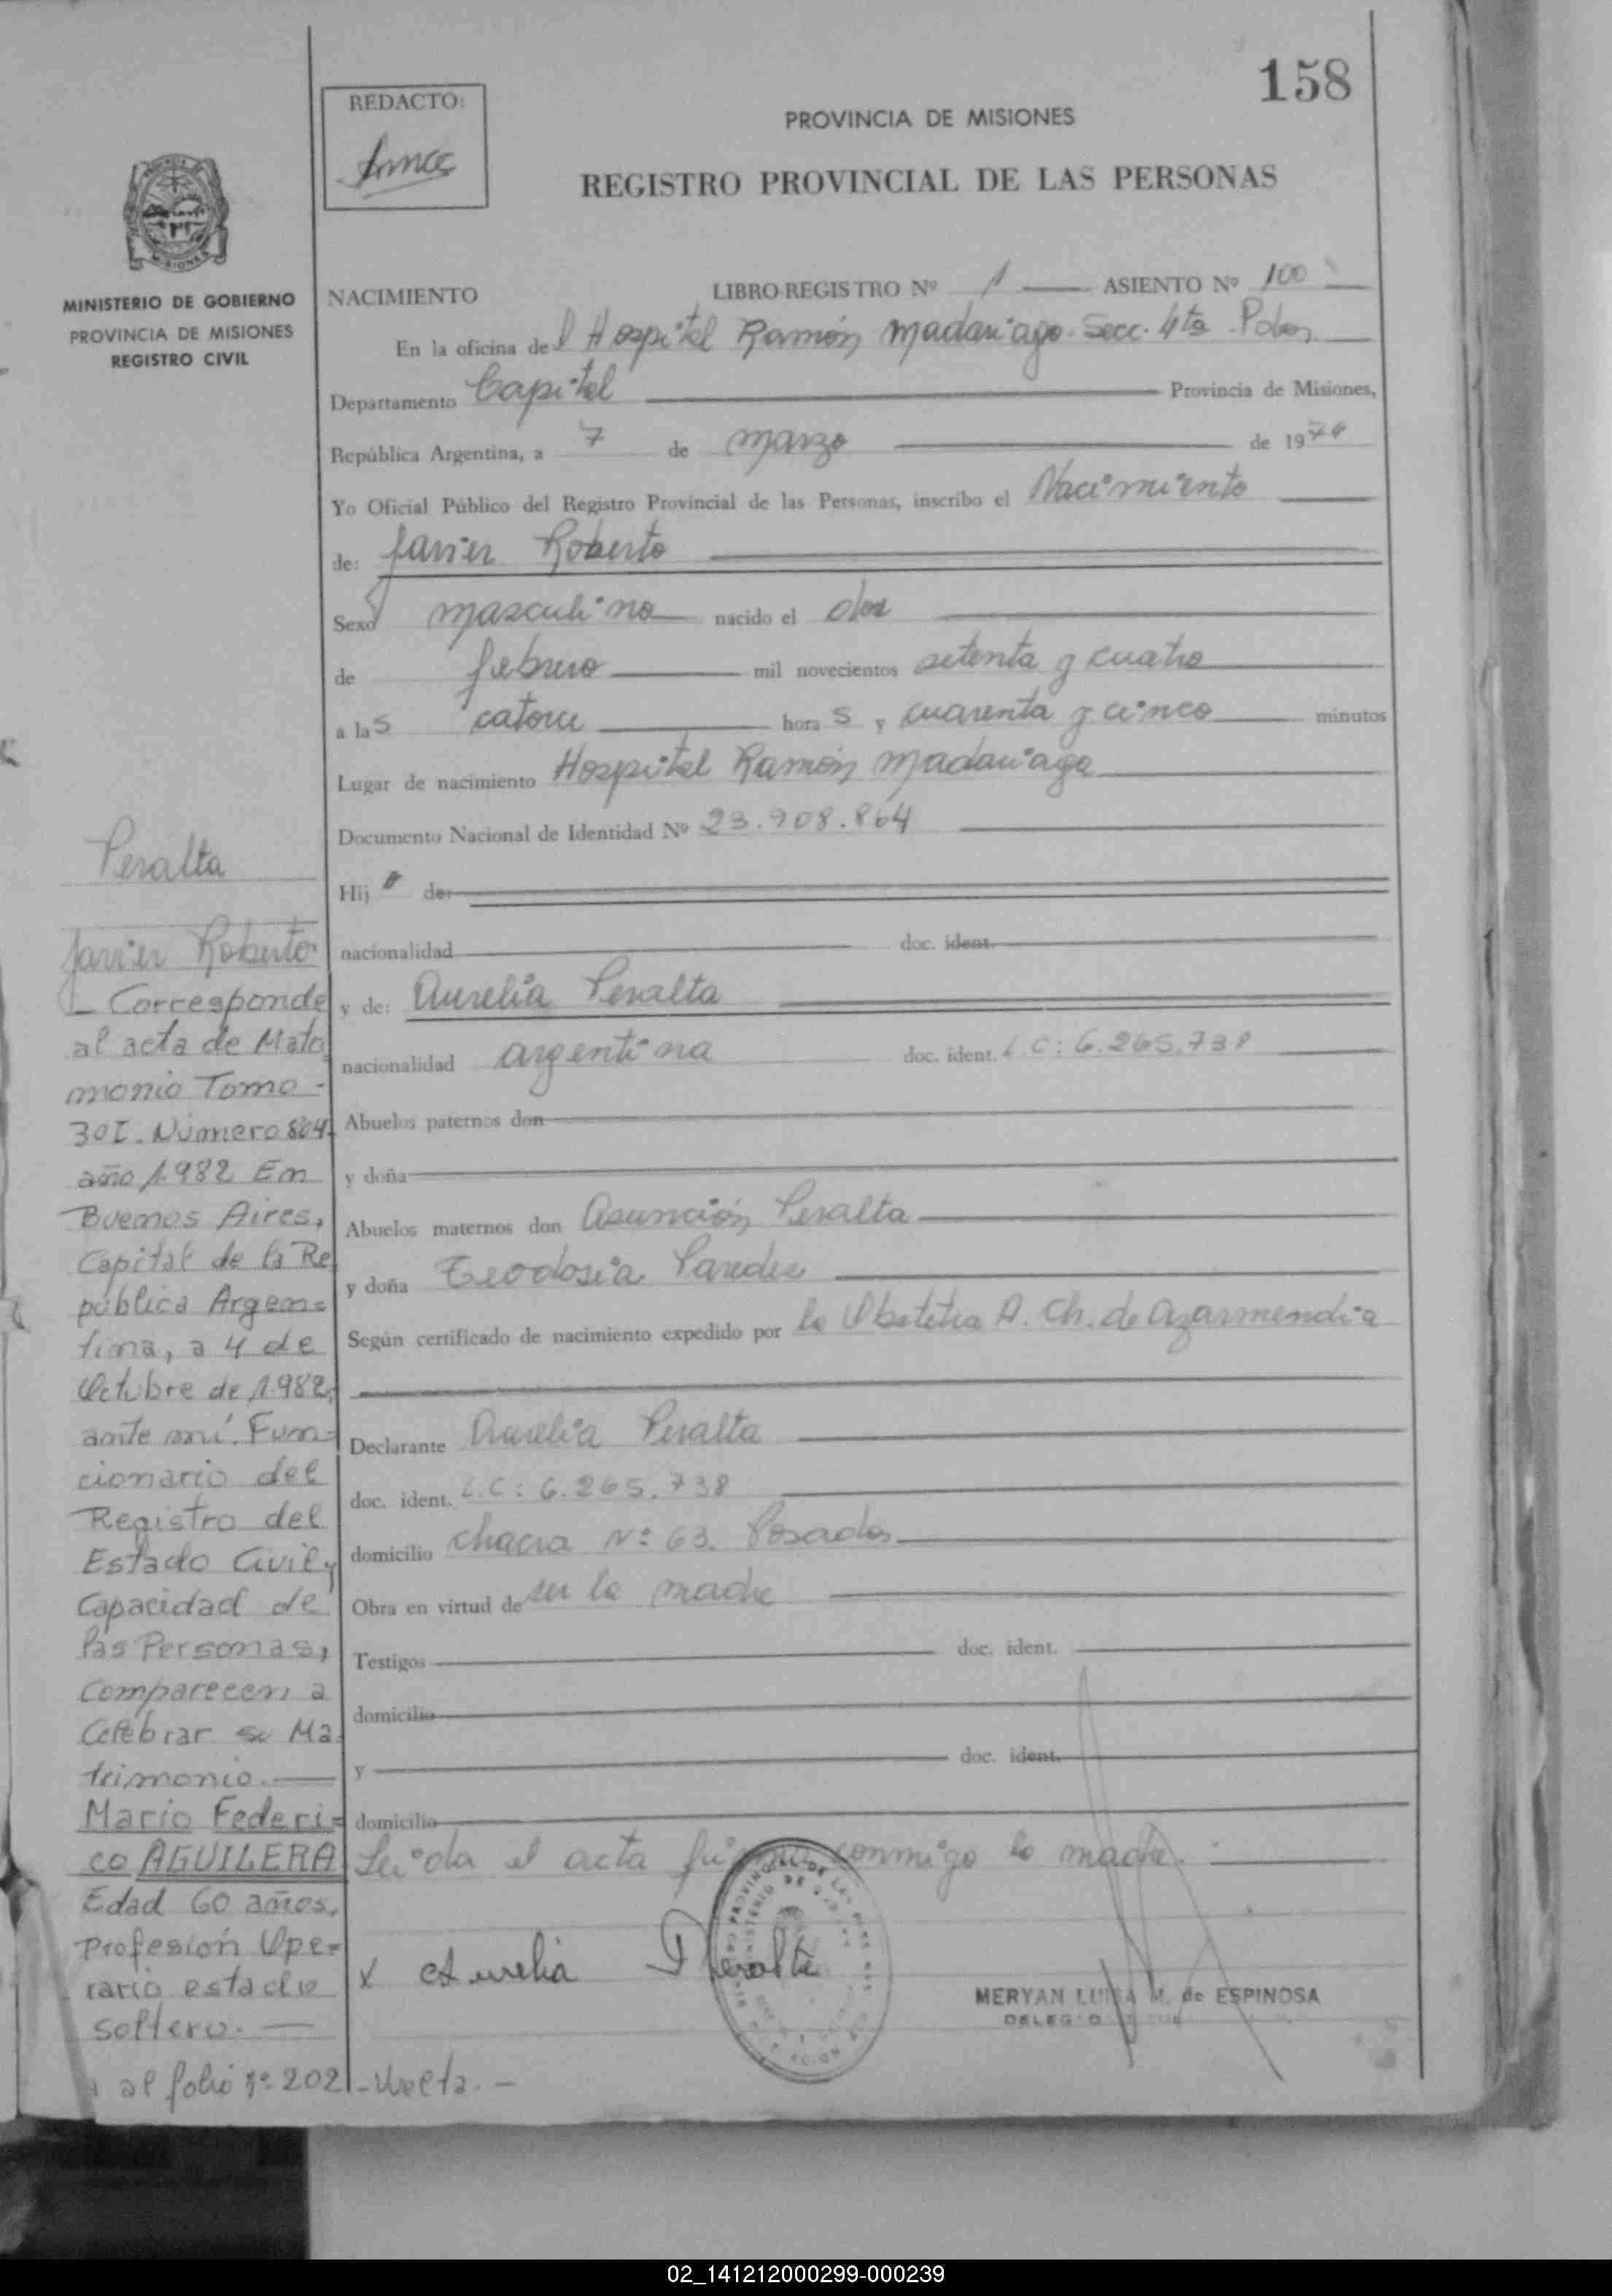 158
REDACTO:
PROVINCIA DE MISIONES
REGISTRO PROVINCIAL DE LAS PERSONAS
MISIONES
MINISTERIO DE GOBIERNO
PROVINCIA DE MISIONES
REGISTRO CIVIL
NACIMIENTO LIBRO REGISTRO Nº 1 ASIENTO Nº 100
En la oficina del Hospital Ramón Madariaga. Secc. 4ta Pdas.
Departamento Capital Provincia de Misiones,
República Argentina, a 7 de marzo de 1974
Yo Oficial Público del Registro Provincial de las Personas, inscribo el Nacimiento
de: Javier Roberto
Sexo masculino nacido el dos
de febrero mil novecientos setenta y cuatro
a las catorce horas y cuarenta y cinco minutos
Lugar de nacimiento Hospital Ramón Madariaga
Documento Nacional de Identidad Nº 23.908.864
Hijo de:
nacionalidad doc. ident.
y de: Aurelia Peralta
nacionalidad argentina doc. ident. L.C: 6.265.738
Abuelos paternos don
y doña
Abuelos maternos don Asunción Peralta
y doña Teodosia Paredes
Según certificado de nacimiento expedido por la Obstetra A. Ch. de Azarmendia
Declarante Aurelia Peralta
doc. ident. L.C: 6.265.738
domicilio chacra Nº: 63. Posadas
Obra en virtud de ser la madre
Testigos doc. ident.
domicilio
y doc. ident.
domicilio
Leida el acta firma conmigo la madre.
x Aurelia Peralta
MERYAN LUISA M. de ESPINOSA
Peralta
Javier Roberto
- Corresponde
al acta de Matri
monio Tomo -
30I. Número 804
año 1.982 En
Buenos Aires,
Capital de la Re
pública Argen=
tina, a 4 de
Octubre de 1.982,
ante mí. Fun=
cionario del
Registro del
Estado Civil y
Capacidad de
las Personas,
Comparecen a
Celebrar su Ma
trimonio.
Mario Federi=
co AGUILERA
Edad 60 años.
Profesión Ope=
rario estado
soltero. —
al folio nº 202 - Vuelta. -
02_141212000299-000239